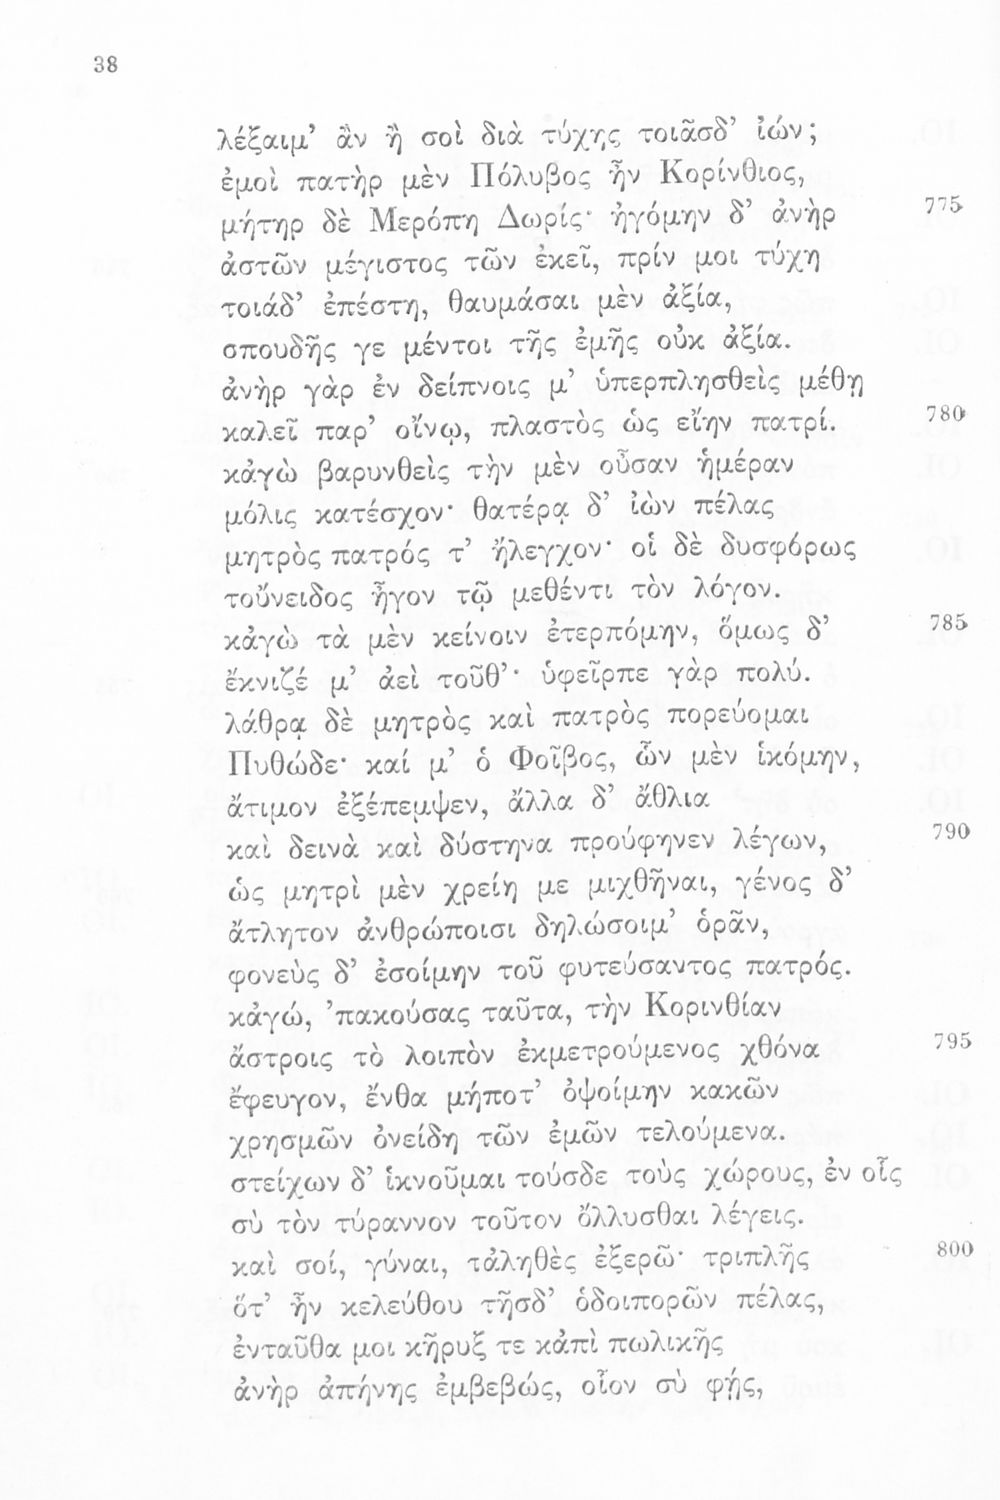 38
λέξαιμ’ ἂν ἢ σοὶ διὰ τύχης τοιᾶσδ’ ἰών;
ἐμοὶ πατὴρ μὲν Πόλυβος ἦν Κορίνθιος,
μήτηρ δὲ Μερόπη Δωρίς· ἠγόμην δ’ ἀνὴρ 775
ἀστῶν μέγιστος τῶν ἐκεῖ, πρίν μοι τύχη
τοιάδ’ ἐπέστη, θαυμάσαι μὲν ἀξία,
σπουδῆς γε μέντοι τῆς ἐμῆς οὐκ ἀξία.
ἀνὴρ γὰρ ἐν δείπνοις μ’ ὑπερπλησθεὶς μέθῃ
καλεῖ παρ’ οἴνῳ, πλαστὸς ὡς εἴην πατρί. 780
κἀγὼ βαρυνθεὶς τὴν μὲν οὖσαν ἡμέραν
μόλις κατέσχον· θατέρᾳ δ’ ἰὼν πέλας
μητρὸς πατρός τ’ ἤλεγχον· οἱ δὲ δυσφόρως
τοὔνειδος ἦγον τῷ μεθέντι τὸν λόγον.
κἀγὼ τὰ μὲν κείνοιν ἐτερπόμην, ὅμως δ’ 785
ἔκνιζέ μ’ ἀεὶ τοῦθ’· ὑφεῖρπε γὰρ πολύ.
λάθρᾳ δὲ μητρὸς καὶ πατρὸς πορεύομαι
Πυθώδε· καί μ’ ὁ Φοῖβος, ὧν μὲν ἱκόμην,
ἄτιμον ἐξέπεμψεν, ἄλλα δ’ ἄθλια
καὶ δεινὰ καὶ δύστηνα προύφηνεν λέγων, 790
ὡς μητρὶ μὲν χρείη με μιχθῆναι, γένος δ’
ἄτλητον ἀνθρώποισι δηλώσοιμ’ ὁρᾶν,
φονεὺς δ’ ἐσοίμην τοῦ φυτεύσαντος πατρός.
κἀγώ, ’πακούσας ταῦτα, τὴν Κορινθίαν
ἄστροις τὸ λοιπὸν ἐκμετρούμενος χθόνα 795
ἔφευγον, ἔνθα μήποτ’ ὀψοίμην κακῶν
χρησμῶν ὀνείδη τῶν ἐμῶν τελούμενα.
στείχων δ’ ἱκνοῦμαι τούσδε τοὺς χώρους, ἐν οἷς
σὺ τὸν τύραννον τοῦτον ὄλλυσθαι λέγεις.
καὶ σοί, γύναι, τἀληθὲς ἐξερῶ· τριπλῆς 800
ὅτ’ ἦν κελεύθου τῆσδ’ ὁδοιπορῶν πέλας,
ἐνταῦθα μοι κῆρυξ τε κἀπὶ πωλικῆς
ἀνὴρ ἀπήνης ἐμβεβώς, οἷον σὺ φῄς,